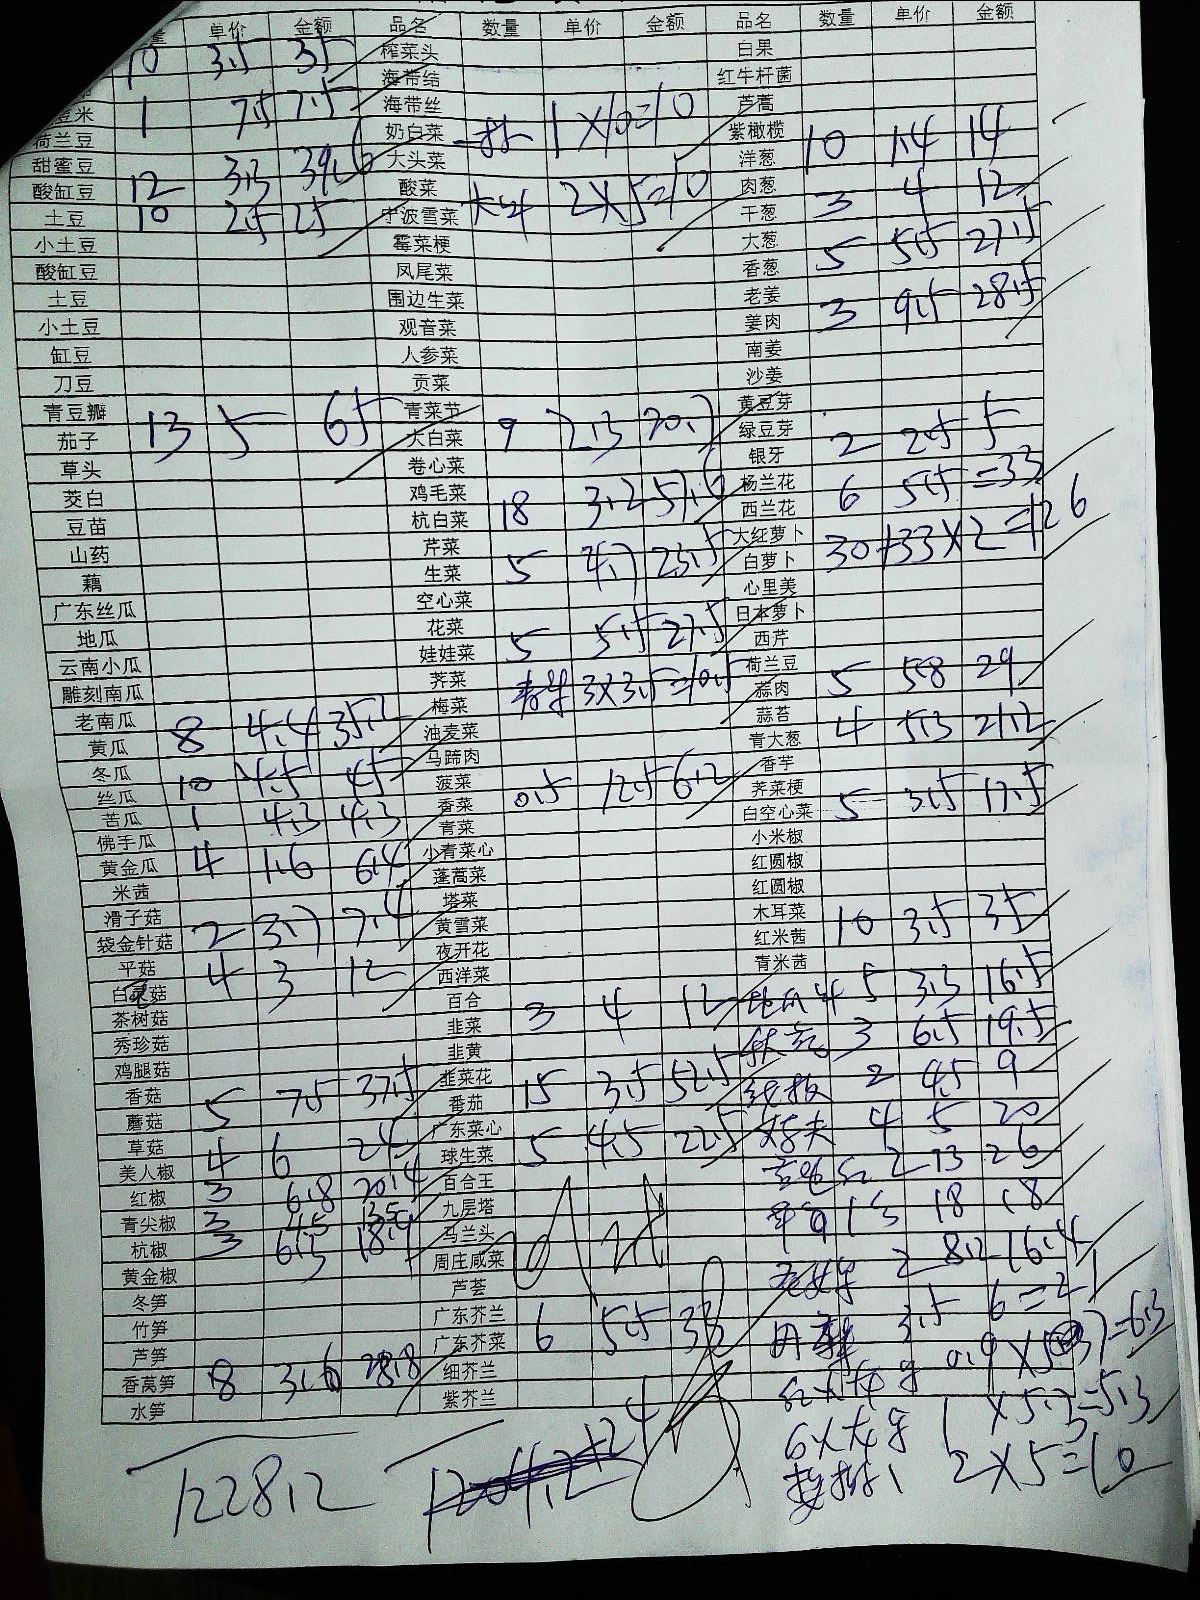 量 单价 金额
10 3.5 35
米 1 7.5 7.5
荷兰豆
甜蜜豆
酸缸豆 12 3.3 39.6
土豆 10 2.5 25
小土豆
酸缸豆
土豆
小土豆
缸豆
刀豆
青豆瓣
茄子 13 5 65
草头
茭白
豆苗
山药
藕
广东丝瓜
地瓜
云南小瓜
雕刻南瓜
老南瓜
黄瓜 8 4.4 35.2
冬瓜
丝瓜 10 4.5 45
苦瓜 1 4.3 4.3
佛手瓜
黄金瓜 4 1.6 6.4
米茜
滑子菇
袋金针菇 2 3.7 7.4
平菇 4 3 12
白灵菇
茶树菇
秀珍菇
鸡腿菇
香菇
蘑菇 5 7.5 37.5
草菇
美人椒 4 6 24
红椒 3 6.8 20.4
青尖椒 3 4.5 13.5
杭椒 3 6.3 18.9
黄金椒
冬笋
竹笋
芦笋
香莴笋 8 3.6 28.8
水笋
品名 数量 单价 金额
榨菜头
海带结
海带丝
奶白菜 1×10=10
大头菜
酸菜
宁波雪菜 2×5=10
霉菜梗
凤尾菜
围边生菜
观音菜
人参菜
贡菜
青菜节
大白菜 9 2.3 20.7
卷心菜
鸡毛菜
杭白菜 18 3.2 57.6
芹菜
生菜 5 4.7 23.5
空心菜
花菜
娃娃菜 5 5.5 27.5
荠菜 3×3.5=10.5
梅菜
油麦菜
马蹄肉
菠菜
香菜 0.5 12.5 6.2
青菜
小青菜心
蓬蒿菜
塔菜
黄雪菜
夜开花
西洋菜
百合
韭菜 3 4 12
韭黄
韭菜花
番茄 15 3.5 52.5
广东菜心
球生菜 5 4.5 22.5
百合王
九层塔
马兰头
周庄咸菜
芦荟
广东芥兰
广东芥菜 6 5.5 33
细芥兰
紫芥兰
品名 数量 单价 金额
白果
红牛杆菌
芦蒿
紫橄榄
洋葱 10 1.4 14
肉葱
干葱 3 4 12
大葱
香葱 5 5.5 27.5
老姜
姜肉 3 9.5 28.5
南姜
沙姜
黄豆芽
绿豆芽 2 2.5 5
银牙
杨兰花 6 5.5=33
西兰花
大红萝卜
白萝卜 30+33×2=126
心里美
日本萝卜
西芹
荷兰豆
蒜肉 5 5.8 29
蒜苔
青大葱 4 5.3 21.2
香芋
荠菜梗
白空心菜 5 3.5 17.5
小米椒
红圆椒
红圆椒
木耳菜
红米茜 10 3.5 35
青米茜
5 3.3 16.5
3 6.5 19.5
2 4.5 9
4 5 20
2 13 26
18 18
2 8.2 16.4
3.5 6=21
0.9×5()=6.3
1×5.3=5.3
2×5=10
1228.2